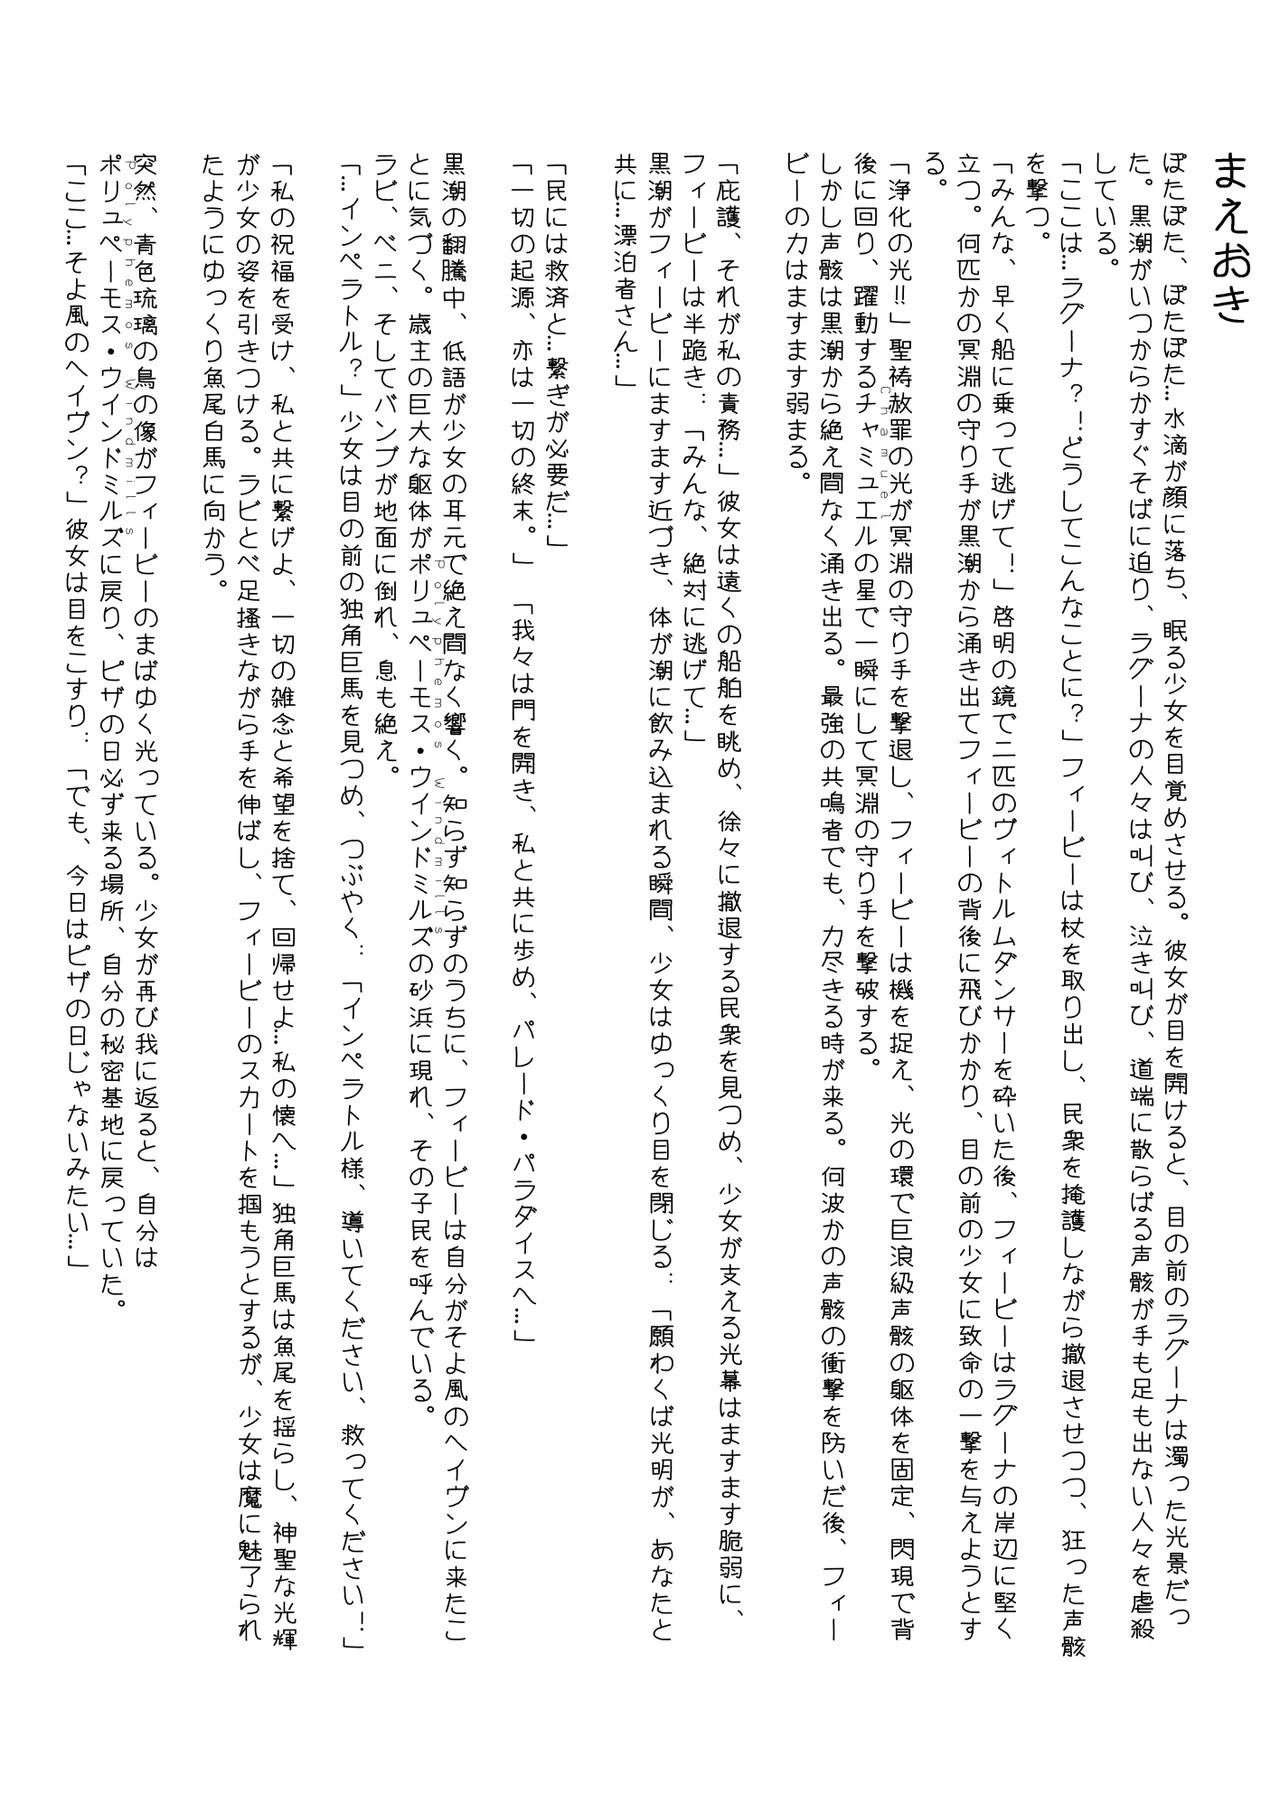 まえおき
ぽたぽた、ぽたぽた…水滴が顔に落ち、眠る少女を目覚めさせる。彼女が目を開けると、目の前のラグーナは濁った光景だっ
た。黒潮がいつからかすぐそばに迫り、ラグーナの人々は叫び、泣き叫び、道端に散らばる声骸が手も足も出ない人々を虐殺
している。
「ここは…ラグーナ？！どうしてこんなことに？」フィービーは杖を取り出し、民衆を掩護しながら撤退させつつ、狂った声骸
を撃つ。
「みんな、早く船に乗って逃げて！」啓明の鏡で二匹のヴィトルムダンサーを砕いた後、フィービーはラグーナの岸辺に堅く
立つ。何匹かの冥淵の守り手が黒潮から涌き出てフィービーの背後に飛びかかり、目の前の少女に致命の一撃を与えようとす
る。
「浄化の光‼」聖祷赦罪の光が冥淵の守り手を撃退し、フィービーは機を捉え、光の環で巨浪級声骸の躯体を固定、閃現で背
後に回り、躍動するチャミュエルの星で一瞬にして冥淵の守り手を撃破する。
Chamuel
しかし声骸は黒潮から絶え間なく涌き出る。最強の共鳴者でも、力尽きる時が来る。何波かの声骸の衝撃を防いだ後、フィー
ビーの力はますます弱まる。
「庇護、それが私の責務…」彼女は遠くの船舶を眺め、徐々に撤退する民衆を見つめ、少女が支える光幕はますます脆弱に、
フィービーは半跪き：「みんな、絶対に逃げて…」
黒潮がフィービーにますます近づき、体が潮に飲み込まれる瞬間、少女はゆっくり目を閉じる：「願わくば光明が、あなたと
共に…漂泊者さん…」
「民には救済と…繋ぎが必要だ…」
「一切の起源、亦は一切の終末。」「我々は門を開き、私と共に歩め、パレード・パラダイスへ…」
黒潮の翻騰中、低語が少女の耳元で絶え間なく響く。知らず知らずのうちに、フィービーは自分がそよ風のヘイヴンに来たこ
とに気づく。歳主の巨大な躯体がポリュペーモス・ウインドミルズの砂浜に現れ、その子民を呼んでいる。
Polyphemos Windmills
ラビ、ベニ、そしてバンブが地面に倒れ、息も絶え。
「…インペラトル？」少女は目の前の独角巨馬を見つめ、つぶやく：「インペラトル様、導いてください、救ってください！」
「私の祝福を受け、私と共に繋げよ、一切の雑念と希望を捨て、回帰せよ…私の懐へ…」独角巨馬は魚尾を揺らし、神聖な光輝
が少女の姿を引きつける。ラビとベ足掻きながら手を伸ばし、フィービーのスカートを掴もうとするが、少女は魔に魅了られ
たようにゆっくり魚尾白馬に向かう。
突然、青色琉璃の鳥の像がフィービーのまばゆく光っている。少女が再び我に返ると、自分は
ポリュペーモス・ウインドミルズに戻り、ピザの日必ず来る場所、自分の秘密基地に戻っていた。
Polyphemos Windmills
「ここ…そよ風のヘイヴン？」彼女は目をこすり：「でも、今日はピザの日じゃないみたい…」